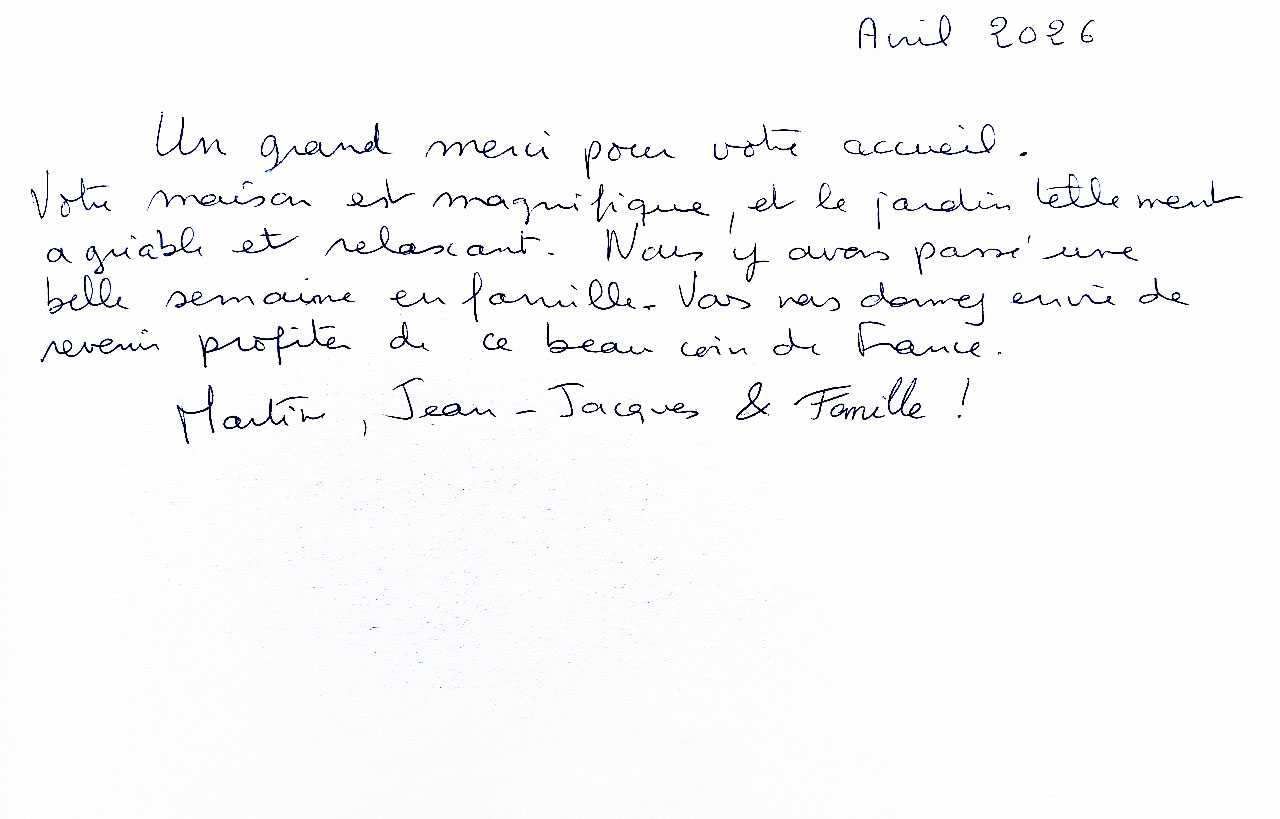 Avril 2026
Un grand merci pour votre accueil.
Votre maison est magnifique, et le jardin tellement
agréable et relaxant. Nous y avons passé une
belle semaine en famille. Vous nous donnez envie de
revenir profiter de ce beau coin de France.
Martin, Jean-Jacques & Famille !